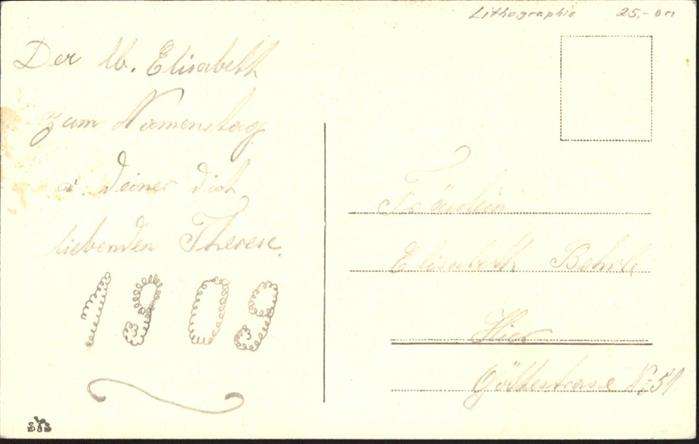 Lithographie 25,-
Der lb. Elisabeth
zum Namenstag
v. Deiner dich
liebenden Therese.
1909
Fräulein
Elisabeth
Hier
No 51